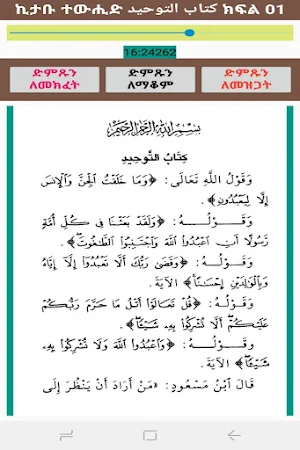 ኪታቡ ተውሒድ كتاب التوحيد ክፍል 01
16:24262
ድምጹን ለመክፈት
ድምጹን ለማቆም
ድምጹን ለመዝጋት
بِسْمِ اللَّهِ الرَّحْمَنِ الرَّحِيمِ
كِتَابُ التَّوْحِيدِ
وَقَوْلُ اللَّهِ تَعَالَى: ﴿وَمَا خَلَقْتُ ٱلْجِنَّ وَٱلْإِنسَ
إِلَّا لِيَعْبُدُونِ﴾
وَقَوْلُهُ: ﴿وَلَقَدْ بَعَثْنَا فِي كُلِّ أُمَّةٍ
رَّسُولًا أَنِ ٱعْبُدُوا۟ ٱللَّهَ وَٱجْتَنِبُوا۟ ٱلطَّـٰغُوتَ﴾ الآيَةَ.
وَقَوْلُهُ: ﴿وَقَضَىٰ رَبُّكَ أَلَّا تَعْبُدُوٓا۟ إِلَّآ إِيَّاهُ
وَبِٱلْوَٰلِدَيْنِ إِحْسَـٰنًا﴾ الآيَةَ.
وَقَوْلُهُ: ﴿قُلْ تَعَالَوْا۟ أَتْلُ مَا حَرَّمَ رَبُّكُمْ
عَلَيْكُمْ أَلَّا تُشْرِكُوا۟ بِهِۦ شَيْـًٔا﴾
وَقَوْلُهُ: ﴿وَٱعْبُدُوا۟ ٱللَّهَ وَلَا تُشْرِكُوا۟ بِهِۦ
شَيْـًٔا﴾ الآيَةَ.
قَالَ ابْنُ مَسْعُودٍ: «مَنْ أَرَادَ أَنْ يَنْظُرَ إِلَى